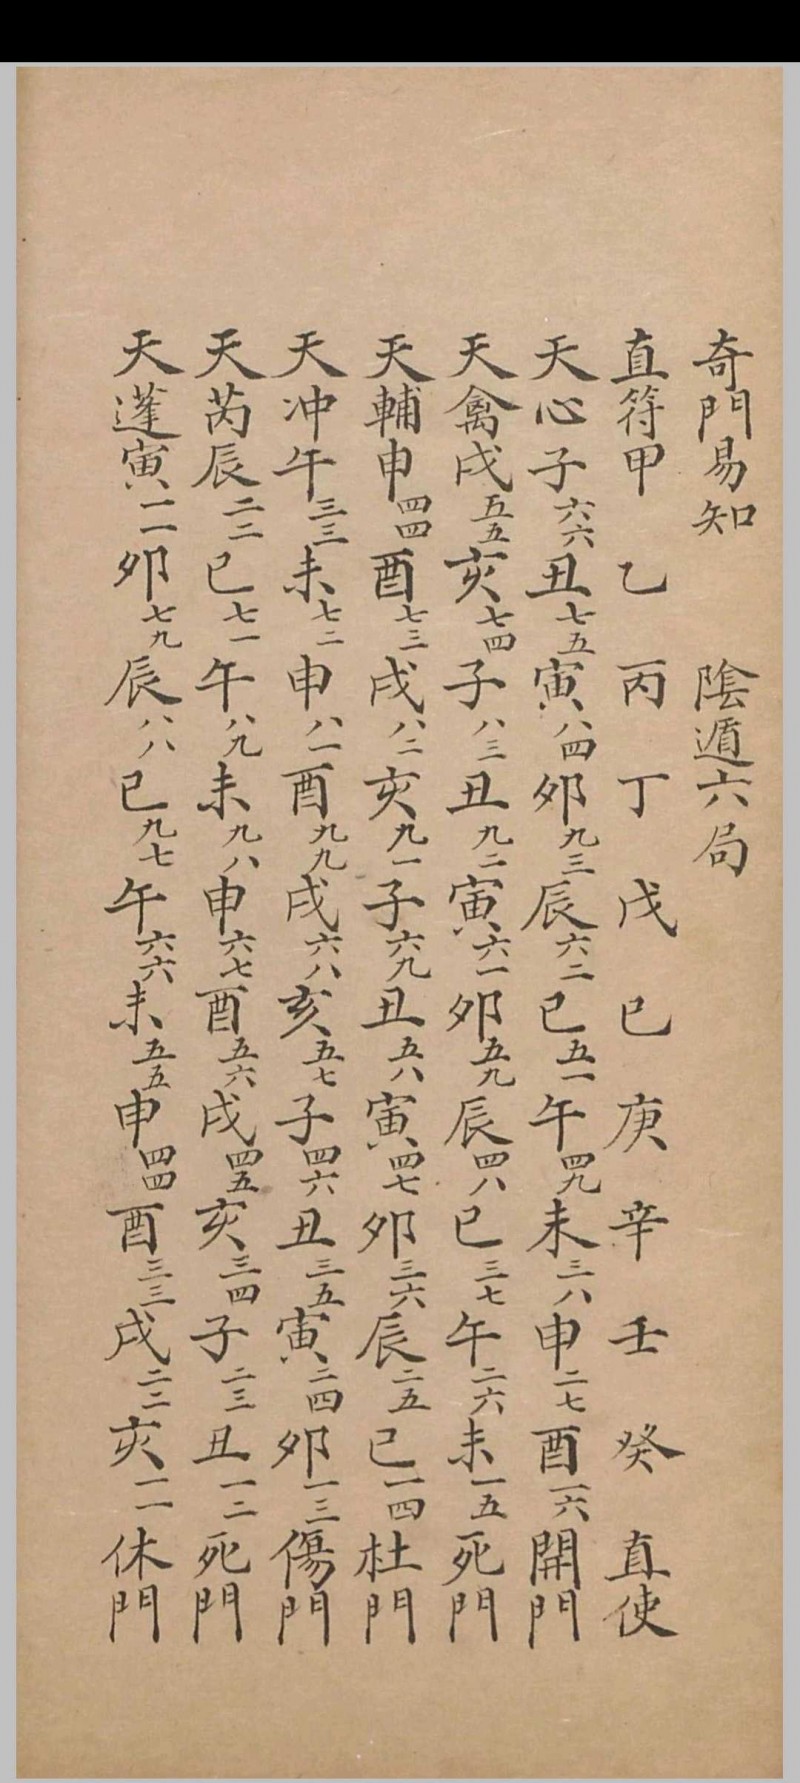 奇門易知　陰遁六局
直符甲乙丙丁戊巳庚辛壬癸直使
天心子六六丑七五寅八四卯九三辰六二巳五一午四九未三八申二七酉一六開門
天禽戌五五亥七四子八三丑九二寅六一卯五九辰四八巳三七午二六未一五死門
天輔申四四酉七三戌八二亥九一子六九丑五八寅四七卯三六辰二五巳一四杜門
天冲午三三未七二申八一酉九九戌六八亥五七子四六丑三五寅二四卯一三傷門
天芮辰二二巳七一午八九未九八申六七酉五六戌四五亥三四子二三丑一二死門
天蓬寅一一卯七九辰八八巳九七午六六未五五申四四酉三三戌二二亥一一休門